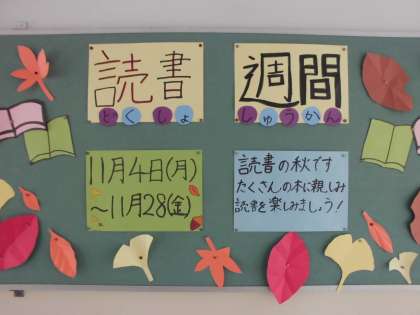 読書
どくしょ
週間
しゅうかん
11月4日(月)
〜11月28(金)
読書の秋です
たくさんの本に親しみ
読書を楽しみましょう!